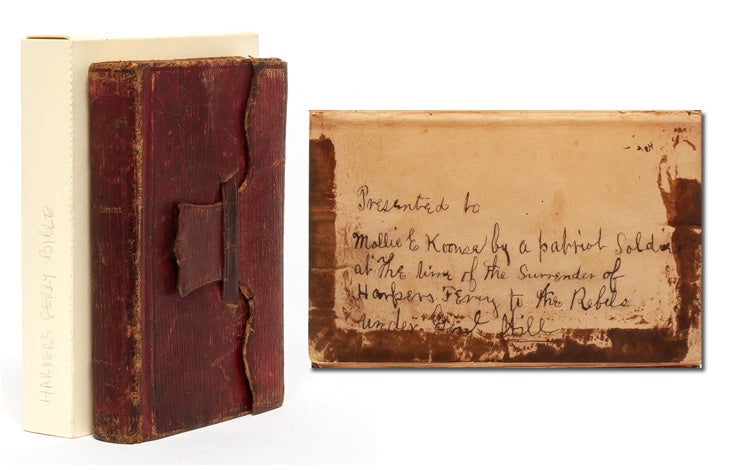 HARPERS FERRY BIBLE
tament
Presented to
Mollie E Koonce by a patriot Soldi
at The time of the Surrender of
Harpers Ferry to the Rebels
under Genl Hill